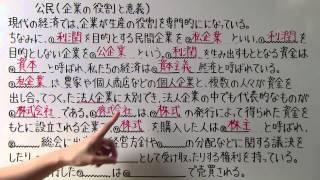 公民(企業の役割と意義)
現代の経済では、企業が生産の役割を専門的ににになっている。
ちなみに、①利潤を目的とする民間企業を②私企業といい、①利潤を
目的としない企業を③公企業という。①利潤を生み出すもととなる資金
は④資本と呼ばれ、私たちの経済は⑤資本主義経済と呼ばれる。
②私企業は農家や個人商店などの個人企業と、複数の人々が資金を
出し合ってつくった法人企業に大別でき、法人企業の中でも代表的なものが
⑥株式会社である。⑥株式会社は、⑦株式の発行によって得られた資金を
もとに設立される企業で、⑦株式を購入した人は⑧株主と呼ばれ、
総会に出
の分配などに関する議決を
したり
として受け取ったりする権利を持っている。
した
で売買される。